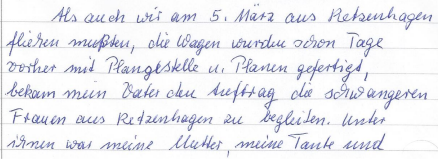 Als auch wir am 5. März aus Retzenhagen
fliehen mußten, die Wagen wurden schon Tage
vorher mit Plangestelle u. Planen gefertigt,
bekam mein Vater den Auftrag die schwangeren
Frauen aus Retzenhagen zu begleiten. Unter
ihnen war meine Mutter, meine Tante und